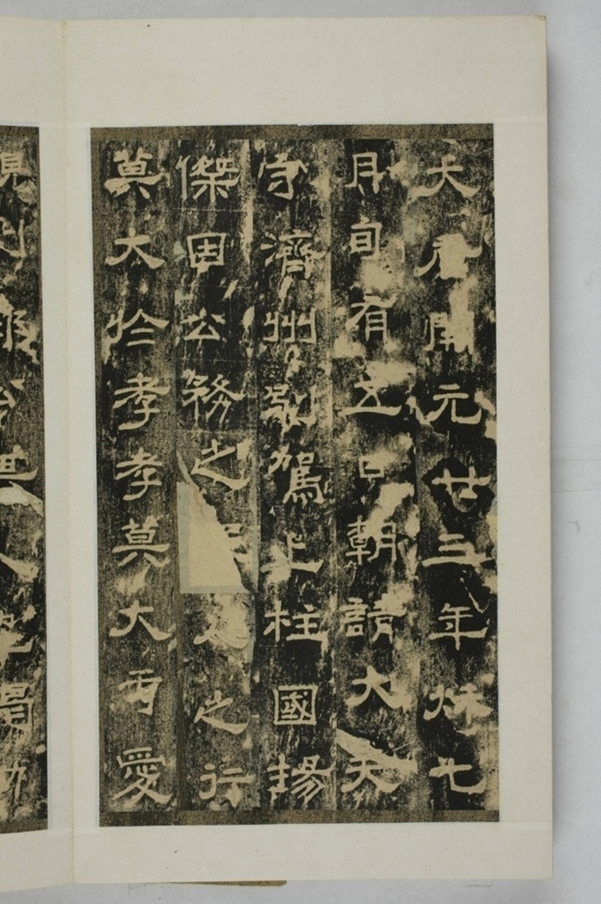 大唐開元廿三年秋七
月旬有五日朝請大夫
守濟州別駕上柱國楊
傑因公務之 之行
莫大於孝孝莫大乎愛